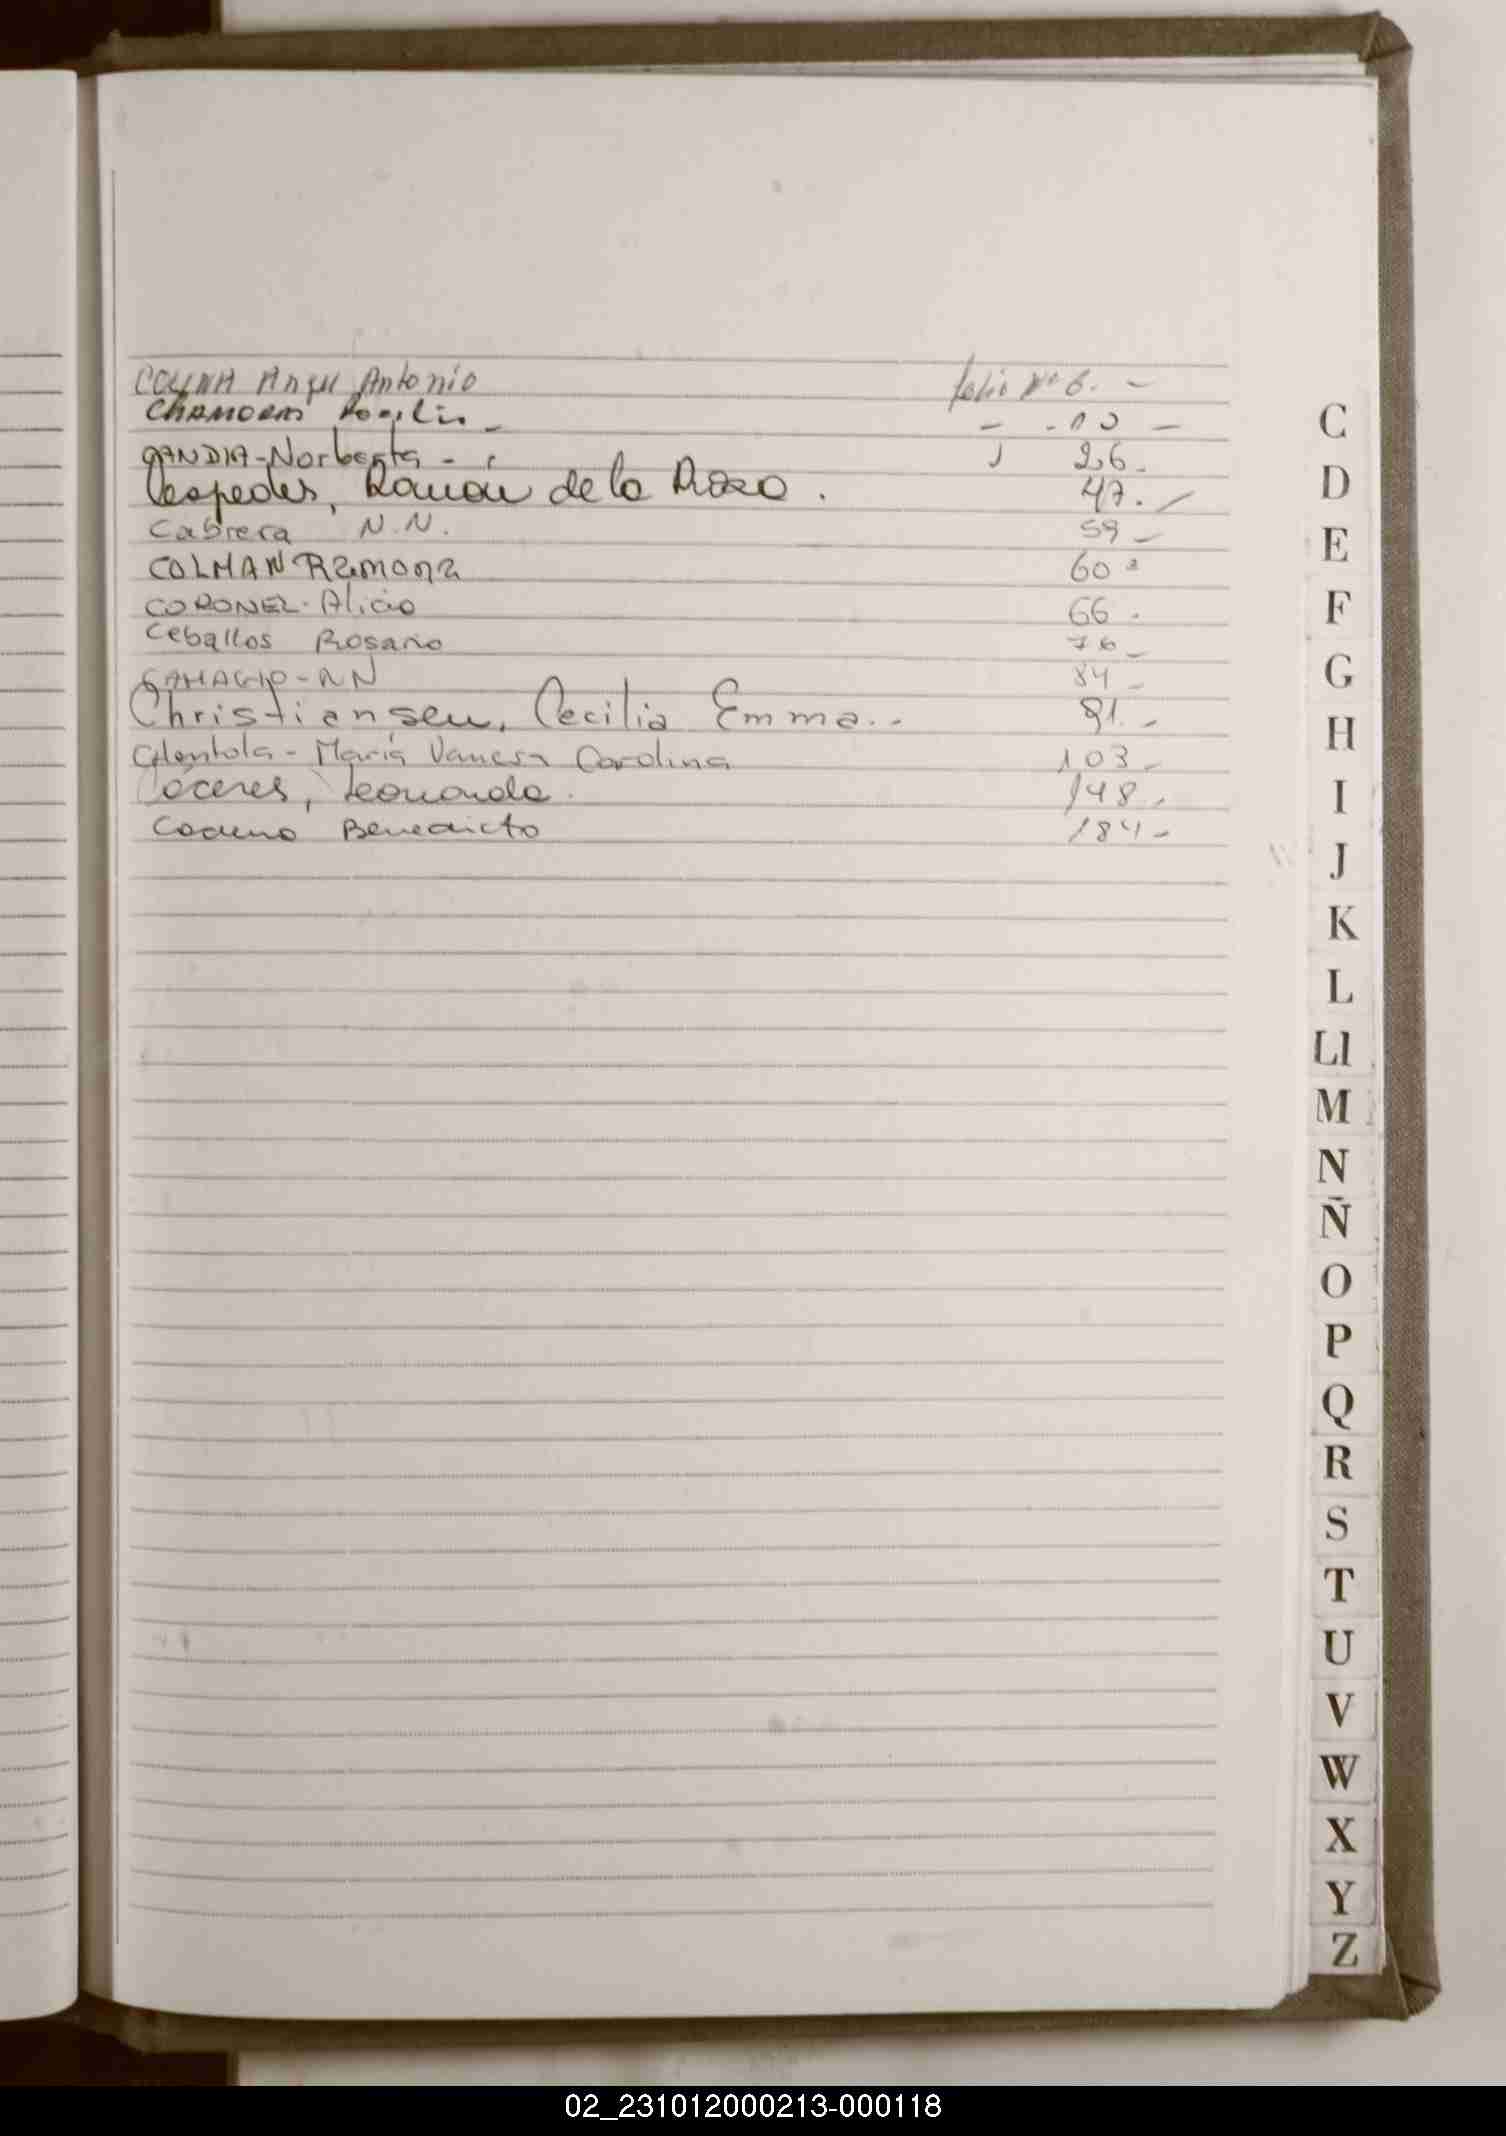 COLINA Angel Antonio folio Nº 6. -
CHAMORRO Rogelio - - - 10 -
GANDIA-Norberta - 26-
Cespedes, Ramón de la Rosa. 47.-
Cabrera N.N. 59-
COLMAN Ramona 60
CORONEL-Alicio 66.
Ceballos Rosario 76-
CAMAGIO-NN 84-
Christiansen, Cecilia Emma.. 91.-
María Vanesa Carolina 103-
Cáceres, Leonarda. 148.
Benedicto 184-
C
D
E
F
G
H
I
J
K
L
Ll
M
N
Ñ
O
P
Q
R
S
T
U
V
W
X
Y
Z
02_231012000213-000118